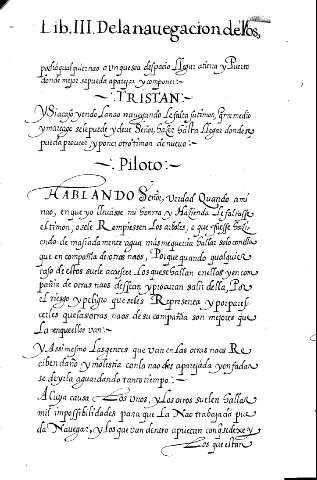 Lib. III. De la nauegacion de los,
podra qualquier nao aunque sea despacio Llegar a tierra y Puerto
donde mejor se pueda aparejar y componer :~
~ TRISTAN ~
Y Si acaso yendo La nao nauegando Le falta su timon, que medio
y manera se le puede y deue Señor, hasta Llegar donde se
pueda proueer y poner otro timon de nueuo :~
~ Piloto :~
HABLANDO Señor, Verdad Quando a mi
nao, en que yo lleuasse mi honrra y Hazienda Le faltasse
el timon, o se le Rompiessen Los arboles, o que fuesse hazi
endo demasiadamente agua mas me querria hallar solo con ella
que en compañia de otras naos, Porque quando qualquier
caso destos suele acaescer Los que se hallan en ellos y en com
pañia de otras naos dessean y procuran salir della, Por
el riesgo y peligro que se les Representa y por pares
cerles que las otras naos de su compañia son mejores que
La en que ellos van :~
Y Assimesmo Las gentes que van en Las otras naos Re
ciben daño y molestia con la nao desaparejada y enfadan
se de yrla aguardando tanto tiempo :~
A Cuya causa Los Vnos, y Los otros suelen hallar
mil impossibilidades para que La Nao trabajada pue
da Nauegar, y Los que van dentro
Los que estan